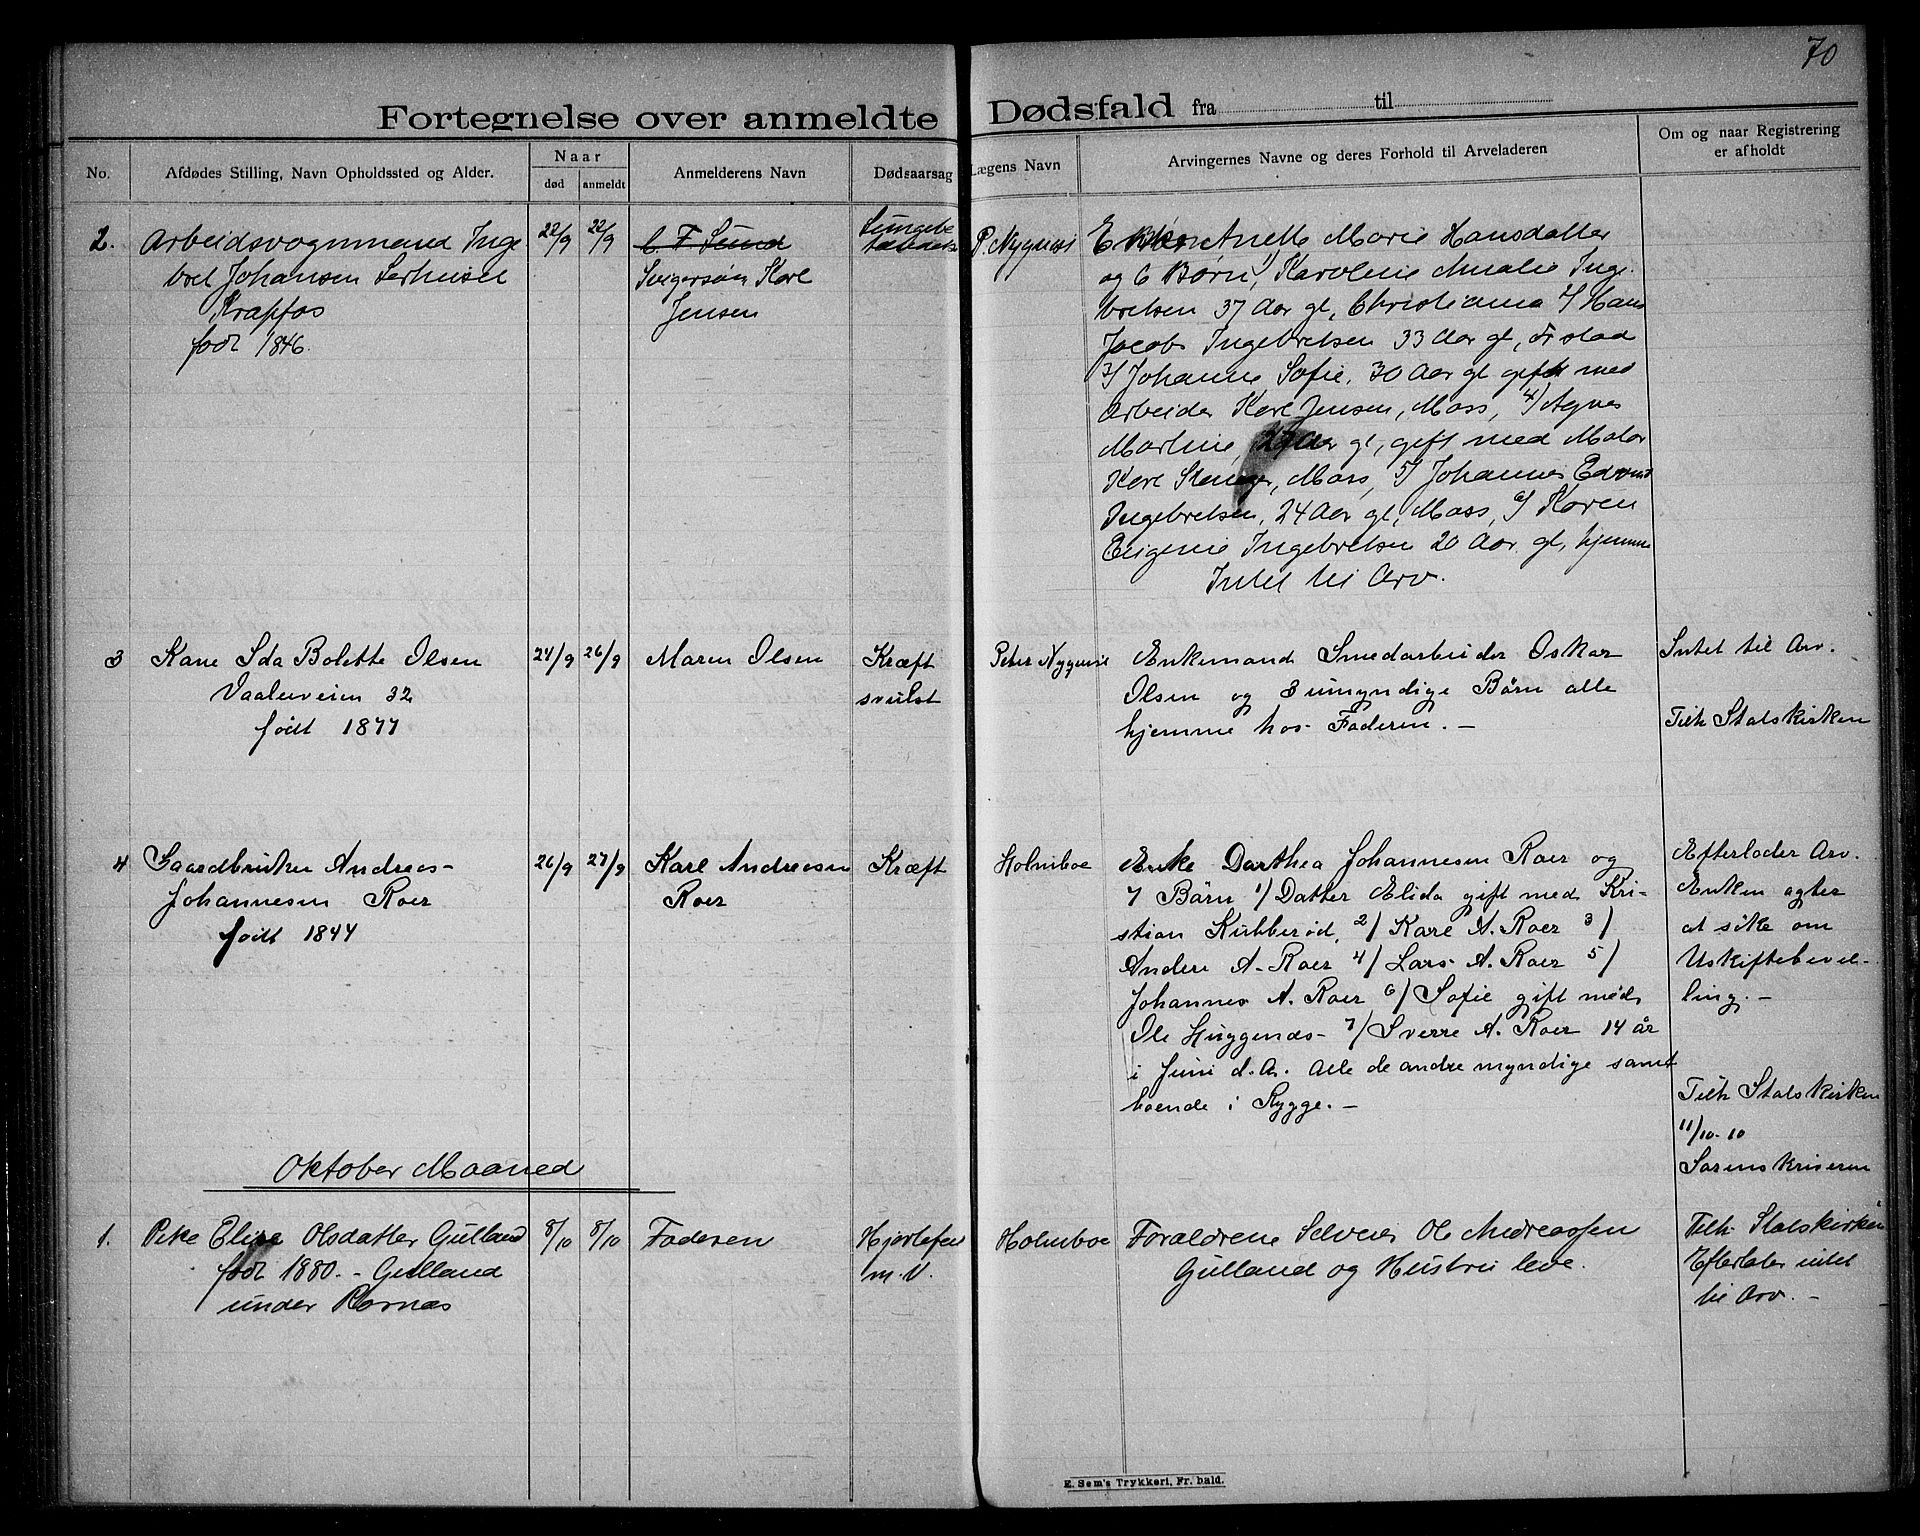 70
Fortegnelse over anmeldte Dødsfald fra til
No.
Afdødes Stilling, Navn Opholdssted og Alder.
Naar
død
anmeldt
Anmelderens Navn
Dødsaarsag
Lægens Navn
Arvingernes Navne og deres Forhold til Arveladeren
Om og naar Registrering
er afholdt
2. Arbeidsvognmand Inge
bret Johansen
Krapfos
født 1846.
22/9 22/9
C. F. Sund
Svigersøn Karl
Jensen
Lungebe
P. Nygaus
Enken Anette Marie Hansdatter
og 6 Børn, 1/ Karoline Amalie Inge-
bretsen 37 Aar gl, Christiania 2/ Hans
Jacob Ingebretsen 33 Aar gl,
3/ Johanne Sofie, 30 Aar gl gift med
Arbeider Karl Jensen, Moss, 4/ Agnes
Martine, 27 Aar gl, gift med Maler
Karl, Moss, 5/ Johannes Edvard
Ingebretsen, 24 Aar gl, Moss, 6/ Karen
Eugenie Ingebretsen 20 Aar gl, hjemme
Intet til Arv.
3 Kone Ida Bolette Olsen
Vaalerveien 32
født 1877
24/9 26/9
Maren Olsen
Kræft
svulst
Peter
Enkemand Smedarbeider Oskar
Olsen og 3 umyndige Børn alle
hjemme hos Faderen. -
Intet til Arv.
Tilh Statskirken
4 Gaardbruker Andreas
Johannesen Roer
født 1844
26/9 27/9
Karl Andreasen
Roer
Kræft
Holmboe
Enke Dorthea Johannesen Roer og
7 Børn 1/ Datter Elida gift med Kri-
stian Kubberød, 2/ Karl A. Roer 3/
Anders A. Roer 4/ Lars A. Roer 5/
Johannes A. Roer 6/ Sofie gift med
Ole Huggenæs 7/ Sverre A. Roer 14 år
i Juni d. A. Alle de andre myndige samt
boende i Rygge. -
Efterlader Arv.
Enken agter
at søke om
Uskiftebevil-
ling. -
Tilh Statskirken
11/10-10
Sorenskriveren
Oktober Maaned
1. Pike Elise Olsdatter Gulland
født 1880. - Gulland
under Kornæs
8/10 8/10
Faderen
Hjertefeil
m. V.
Holmboe
Forældrene Selveier Ole Andreassen
Gulland og Hustru leve.
Tilh Statskirken
Efterlater intet
til Arv. -
E. Sem's Trykkeri, Fr. hald.